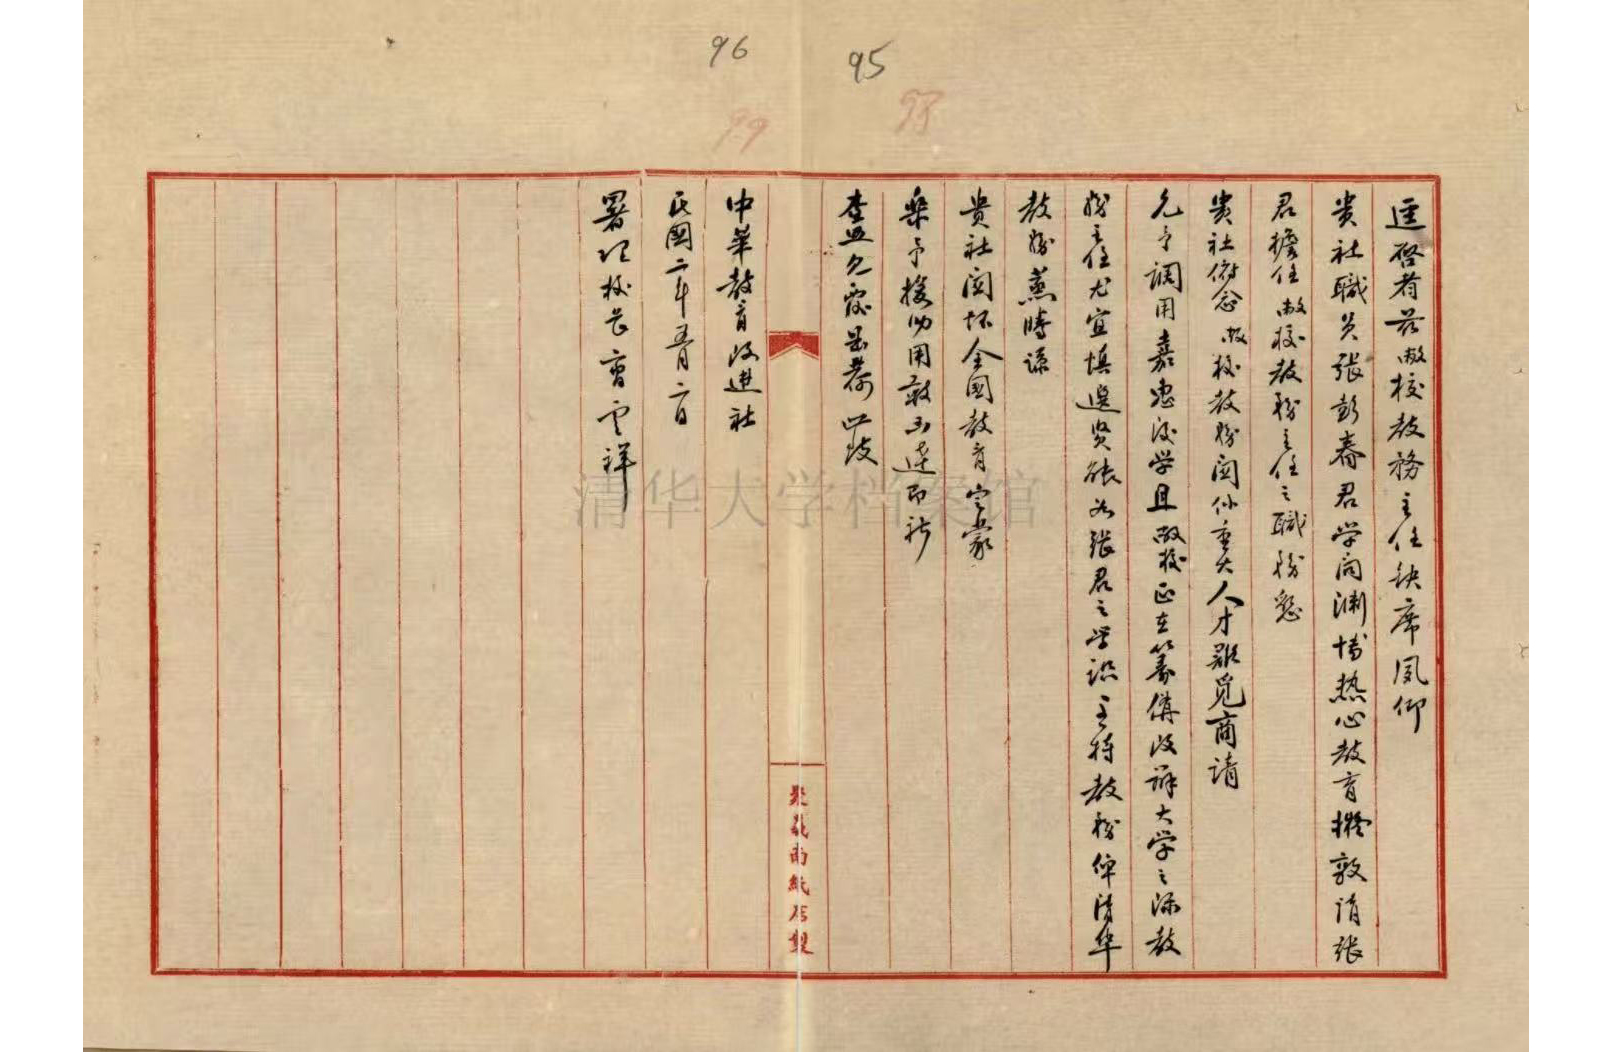 96
95
99
98
逕啓者茲敝校教務主任缺席夙仰
貴社職員張彭春君学问渊博热心教育擬敦请張
君擔任敝校教務主任之職務懇
貴社俯念敝校教務関係重大人才難覓商请
允予調用嘉惠後学且敝校正在籌備改辦大学之际教
務主任尤宜慎選贤能如張君之学識主持教務俾清华
教務蒸蒸
貴社関怀全國教育定蒙
樂予援助用敢函達即祈
查照允覆是荷此致
中華教育改進社
民國二年五月二日
署理校长曹雲祥
清华大学档案馆
南紙店製